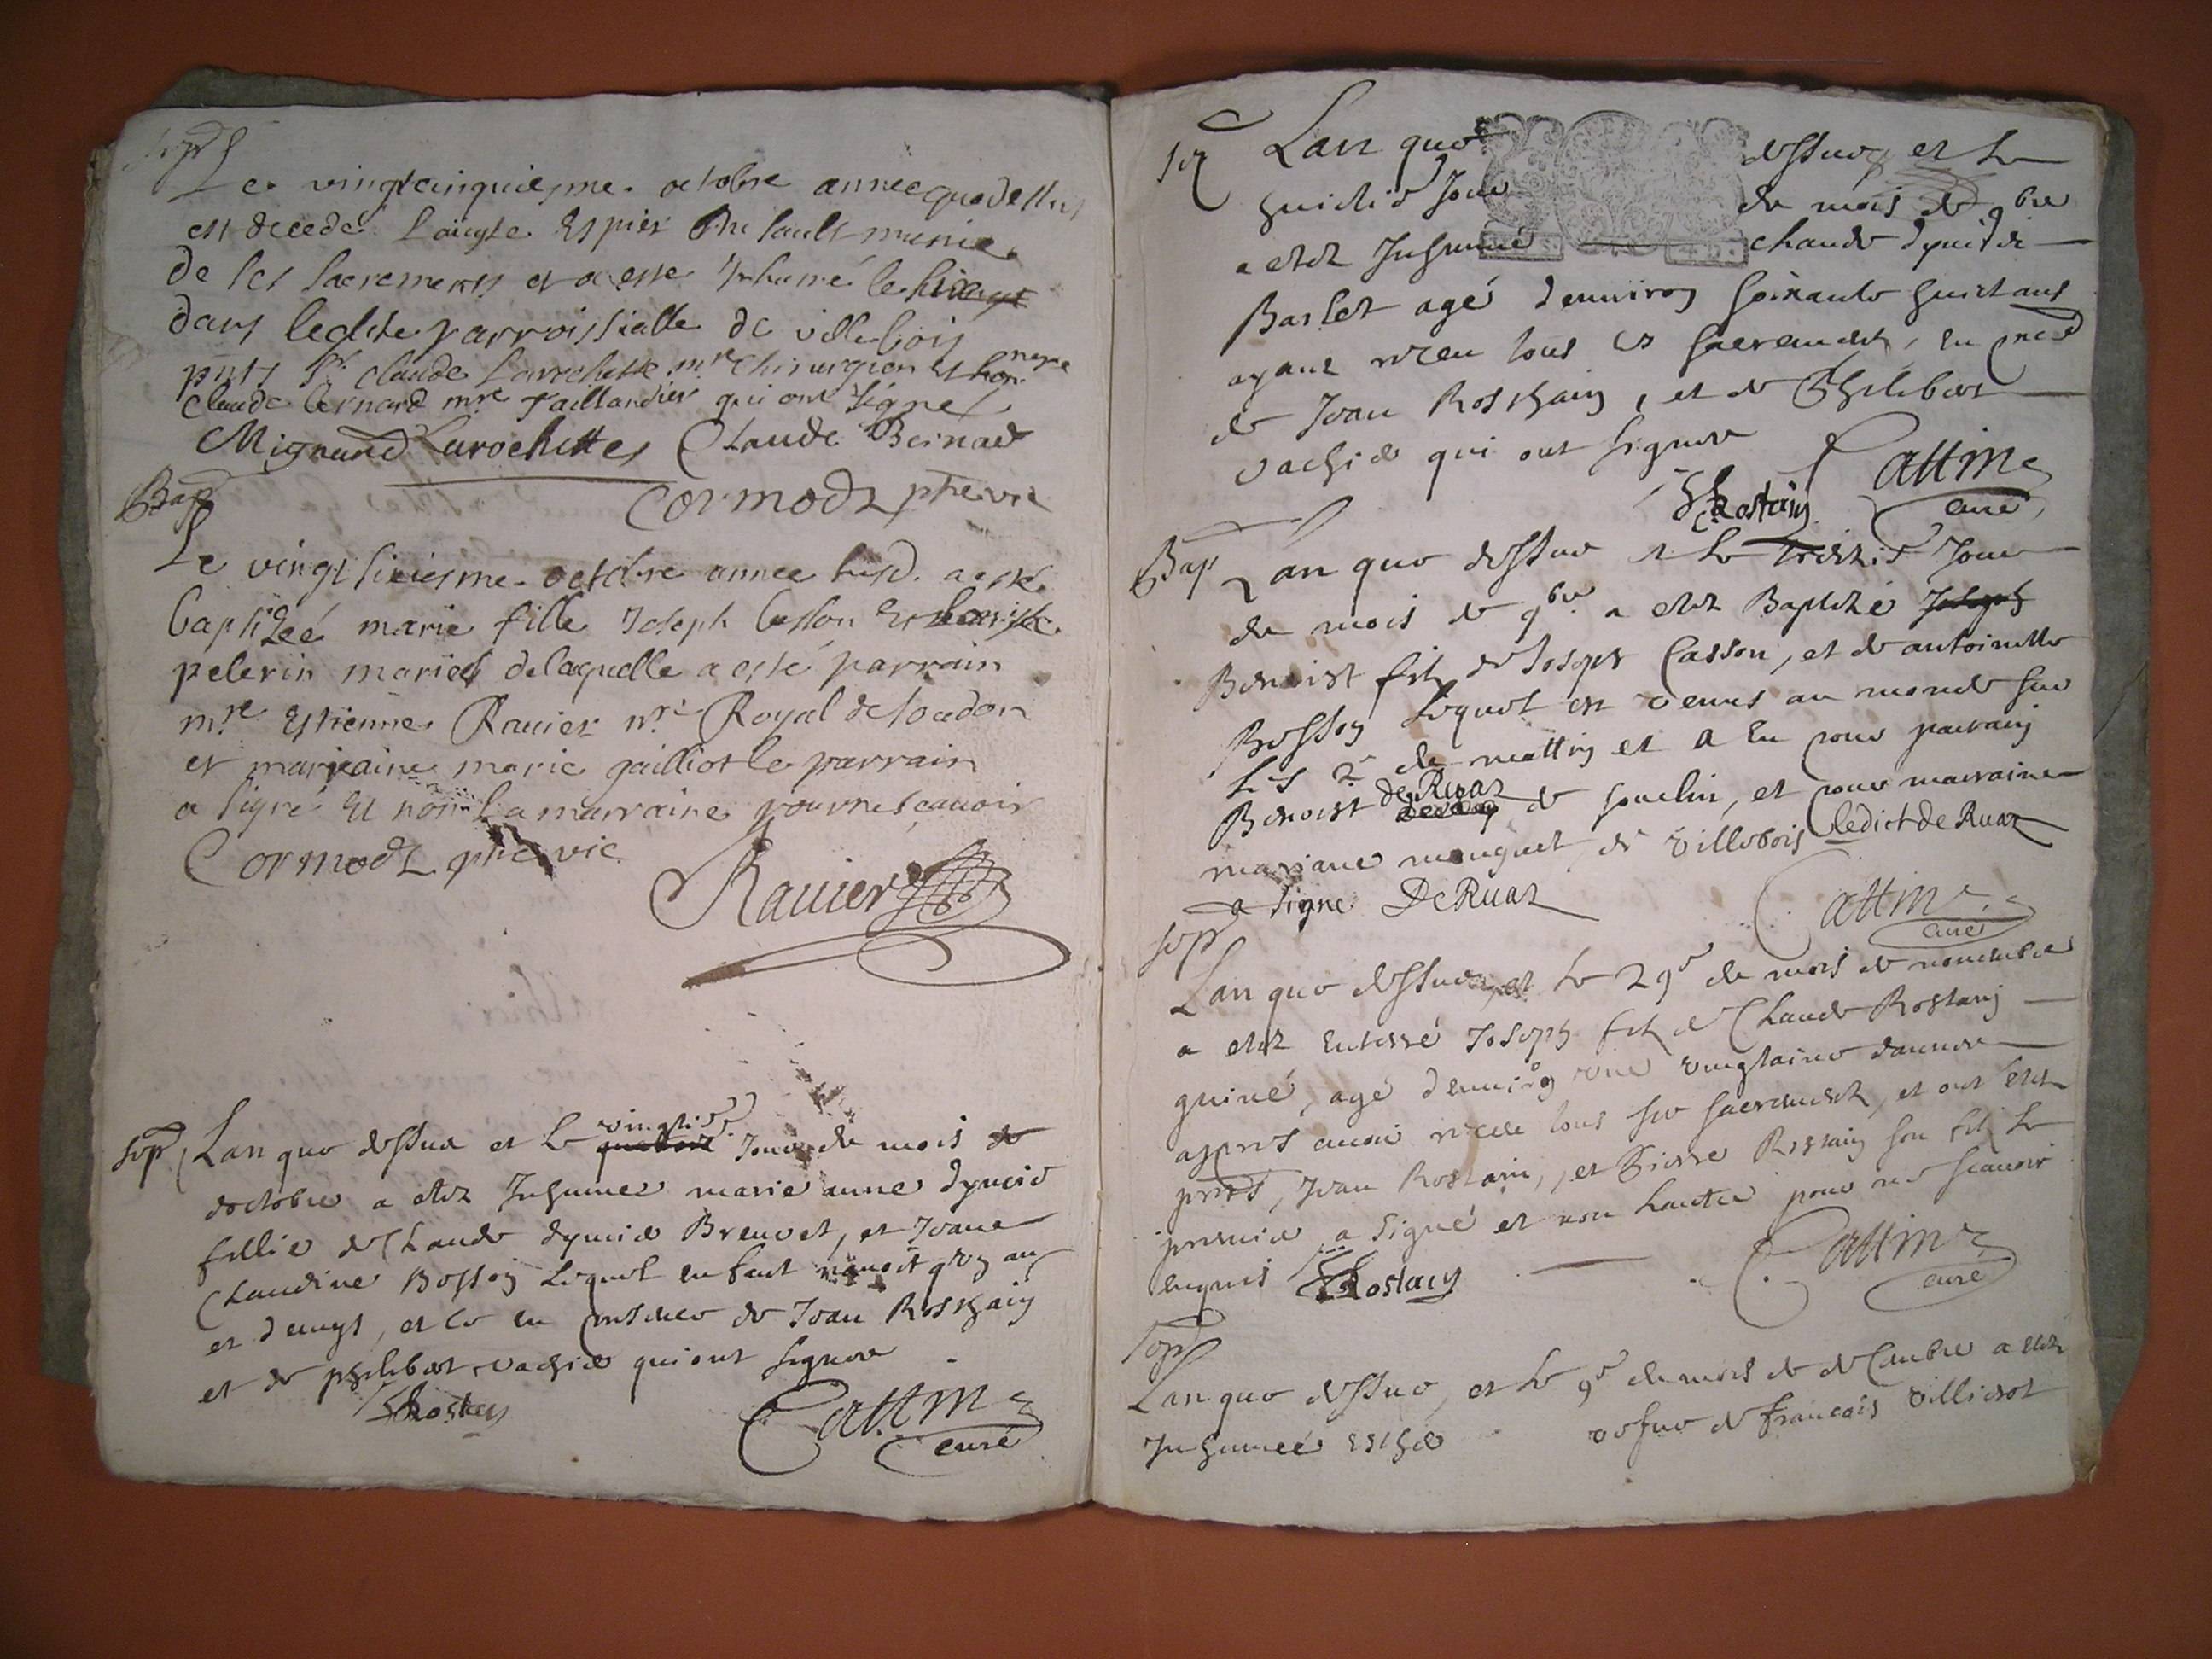 sep
Le vingtcinquiesme octobre annee que dessus
est decedé Espier du sault munie
de ses sacrements et a esté Inhumé le
dans leglise parroissialle de villebois
pnts Sr Claude Larochette mre Chirurgien et hon
Claude Bernard mre Taillandier qui ont signé
Mignand Larochette Claude Bernad
Cormodz ptre vic
Bap
Le vingt sixiesme octobre annee susd. a esté
baptizeé marie fille Joseph Casson et
pelerin maries de laquelle a esté parrain
mre Estienne Rauier nre Royal de loudon
et marraine marie gailliot le parrain
a signé et non la marraine pour ne scauoir
Cormodz ptre vic
Rauier
sep Lan que dessus et le vingtie Jour du mois de
doctobre a etez Inhumee marie anne dynie
fillie de Claude dynie Breuvet, et Jeane
Claudine Bosson lequel enfant nauoit q un an
et demy, et ce en presence de Jean Rosthain
et de philibert vachie qui ont signere
Rostain
Cattin
curé
sep Lan que dessus et le
huictie Jour du mois de 9bre
a etez Inhumé Claude dynie de
Barlet agé denuiron soixante huict ans
ayant receu tous ces sacrements, en pnce
de Jean Rosthain, et de Philibert
vachie qui ont signere
Rostain
Cattin
curé
Bap Lan que dessus et le treizie Jour
du mois de 9bre a etez Baptizé Joseph
Benoist fils de Joseph Casson, et de antoinette
Bosson lequel est venus au monde sur
les 2 du mattin et a eu pour parrain
Benoist deRuaz de souclin, et pour marraine
mariane monguet de villebois ledict deRuaz
a signe DeRuaz
Cattin
curé
sep
Lan que dessus, et le 29e du mois de nouembre
a etez enterré Joseph fils de Claude Rostaing
guiné, agé denuiron une vingtaine dannee
apres auoir receu tous ses sacrements, et ont etez
pnts, Jean Rostain, et Pierre Rostain son fils le
premie a signé et non lautre pour ne scauoir
enquis Rostain
Cattin
curé
sep
Lan que dessus, et le 9e du mois de decembre a etez
Inhumeé Esthe vefue de francois villierot